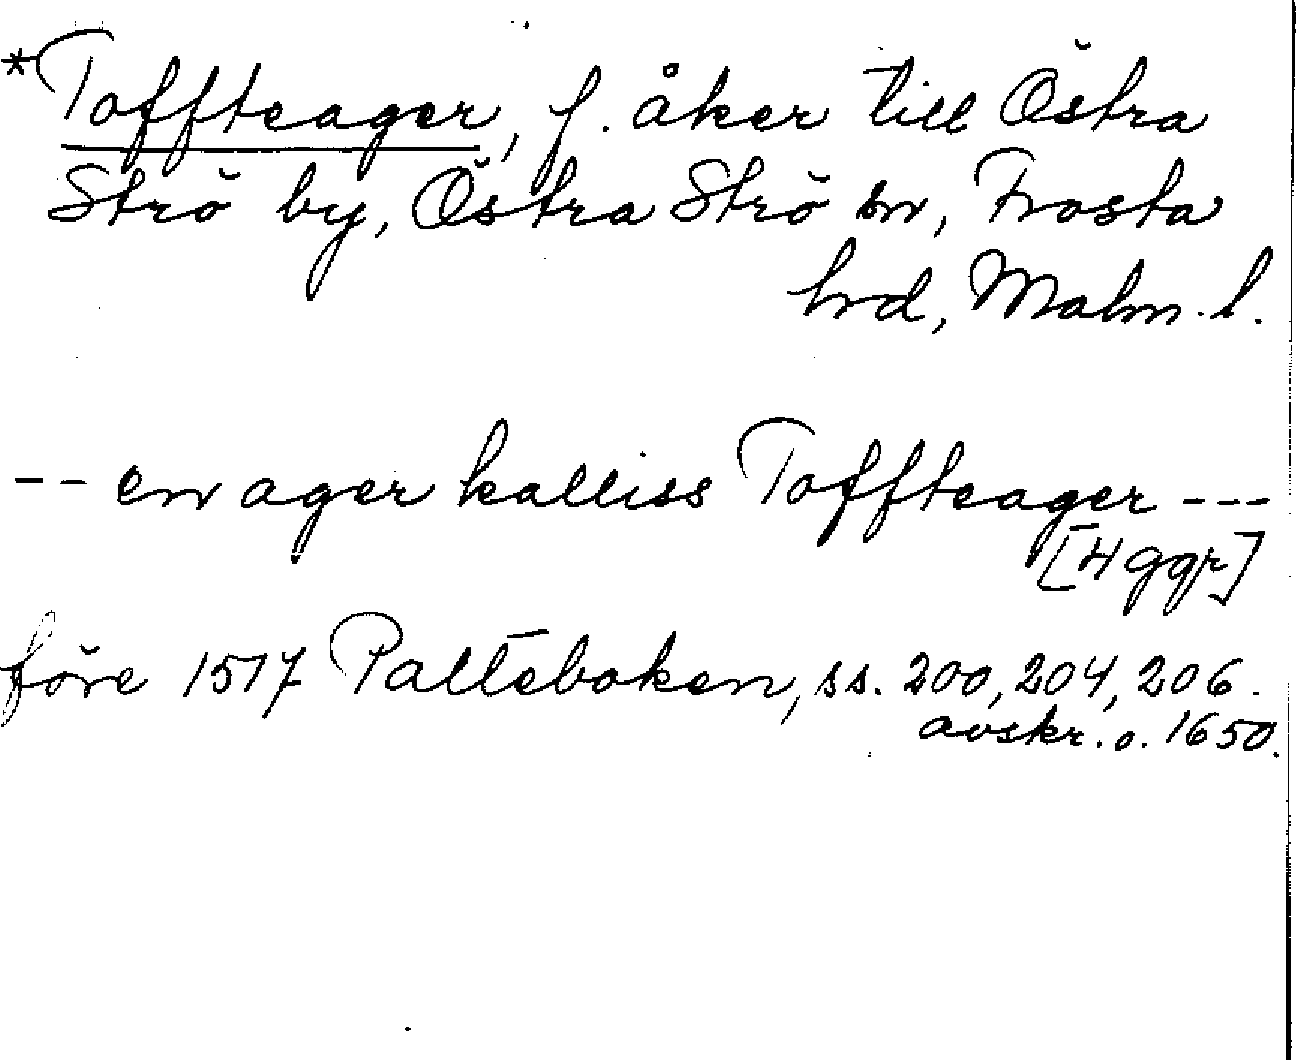 *Toffteager, f. åker till Östra
Strö by, Östra Strö sn, Frosta
hd, Malm. l.
-- en ager kalliss Toffteager ---
[4 ggr]
före 1517 Palteboken, ss. 200, 204, 206.
avskr. o. 1650.